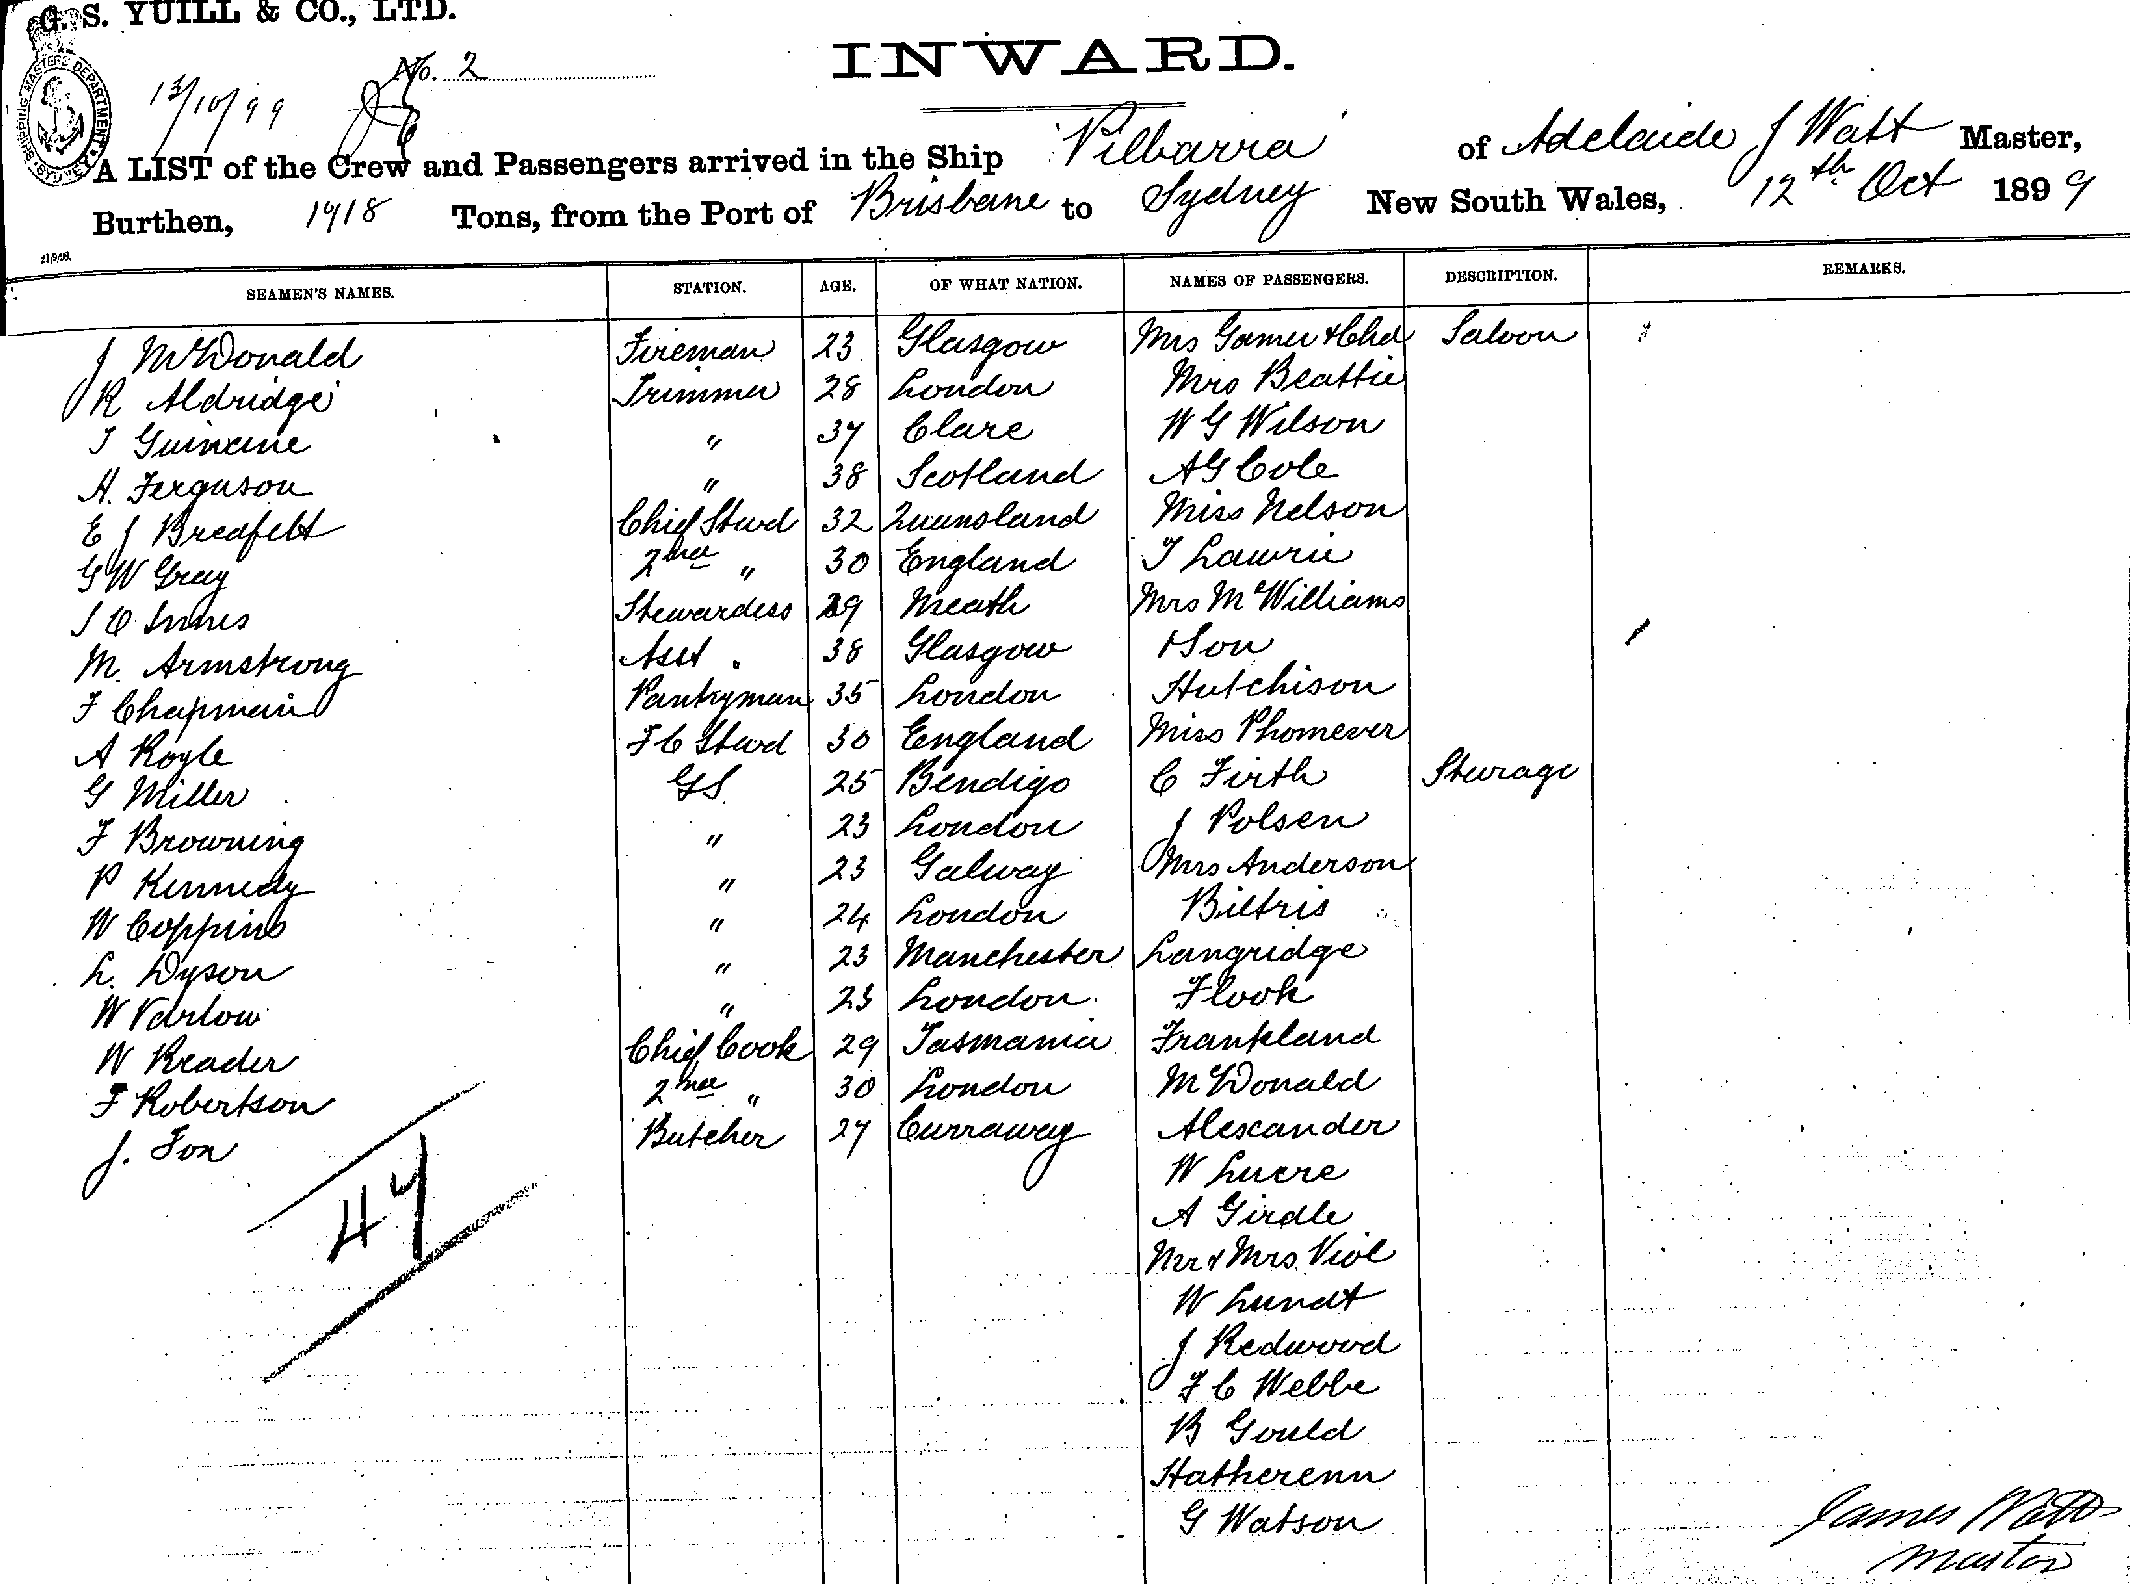 G. S. YUILL & CO., LTD.
INWARD.
No. 2
13/10/99
SHIPPING MASTERS DEPARTMENT SYDNEY
A LIST of the Crew and Passengers arrived in the Ship 'Pilbarra' of Adelaide J Watt Master,
Burthen, 1918 Tons, from the Port of Brisbane to Sydney New South Wales, 12th Oct 1899
SEAMEN'S NAMES. STATION. AGE. OF WHAT NATION. NAMES OF PASSENGERS. DESCRIPTION. REMARKS.
J McDonald Fireman 23 Glasgow Mrs Gamer & Chd Saloon
R Aldridge Trimmer 28 London Mrs Beattie
T Guineine " 37 Clare W G Wilson
A. Ferguson " 38 Scotland A G Cole
E J Bredfelt Chief Stwd 32 Queensland Miss Nelson
G W Gray 2nd " 30 England T Lawrie
J C Innes Stewardess 29 Meath Mrs McWilliams
M. Armstrong Asst . 38 Glasgow & Son
F Chapman Pantryman 35 London Hutchison
A Royle F C Stwd 30 England Miss Phomever
G Miller GS. 25 Bendigo C Firth Steerage
F Browning " 23 London J Polsen
P Kennedy " 23 Galway Mrs Anderson
W Coppins " 24 London Biltris
L. Dyson " 23 Manchester Langridge
W Varlow " 23 London Flook
W Reader Chief Cook 29 Tasmania Frankland
F Robertson 2nd " 30 London McDonald
J. Fox Butcher 27 Curraway Alexander
W Lucre
A Girdle
47
Mr & Mrs Viol
W Lundt
J Redwood
F C Webbe
B Gould
Hatherenn
G Watson
James Watt
Master